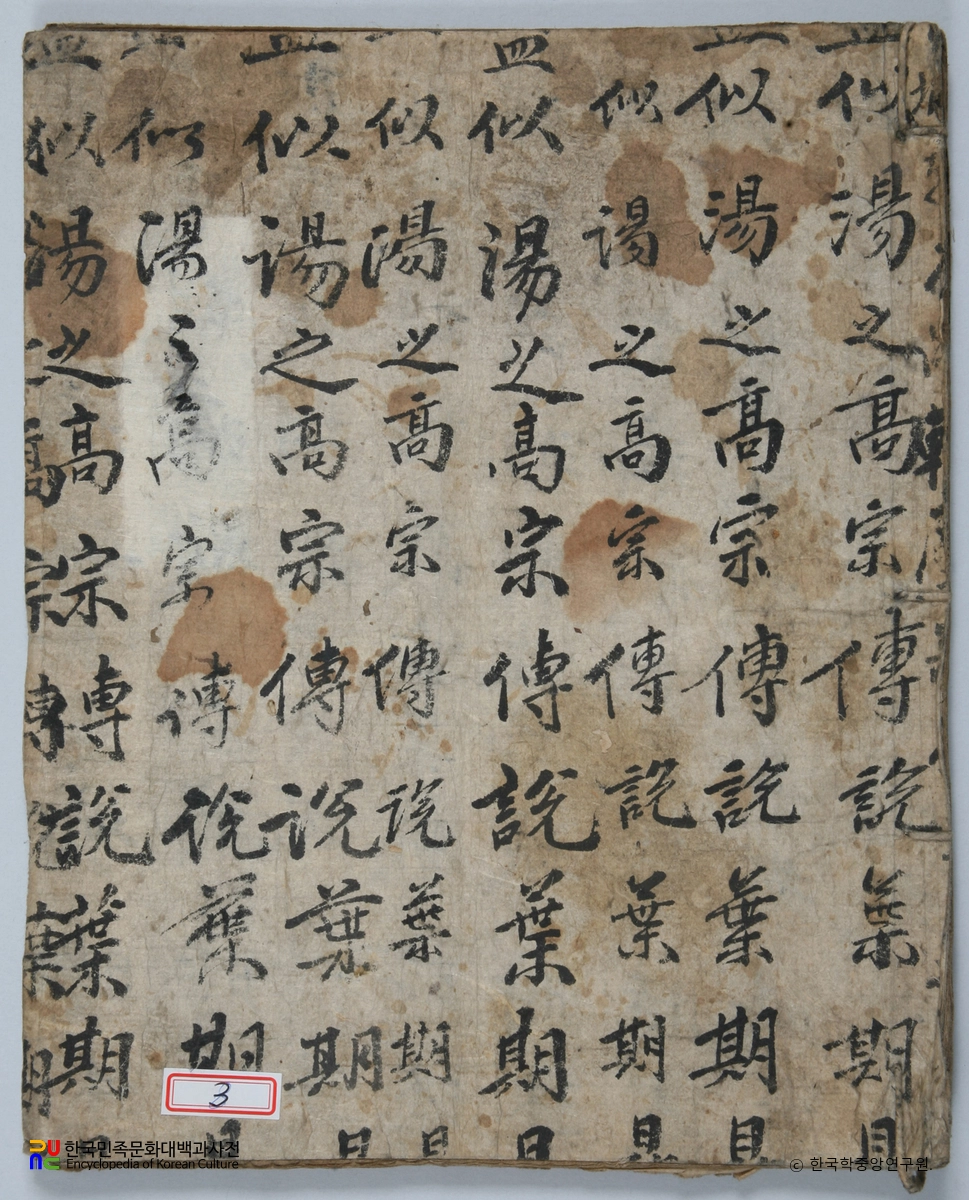 似湯之高宗傳說葉期
似湯之高宗傳說葉期
似湯之高宗傳說葉期
似湯之高宗傳說葉期
似湯之高宗傳說葉期
似湯之高宗傳說葉期
似湯之高宗傳說葉期
似湯之高宗傳說葉期
3
한국민족문화대백과사전
Encyclopedia of Korean Culture
© 한국학중앙연구원